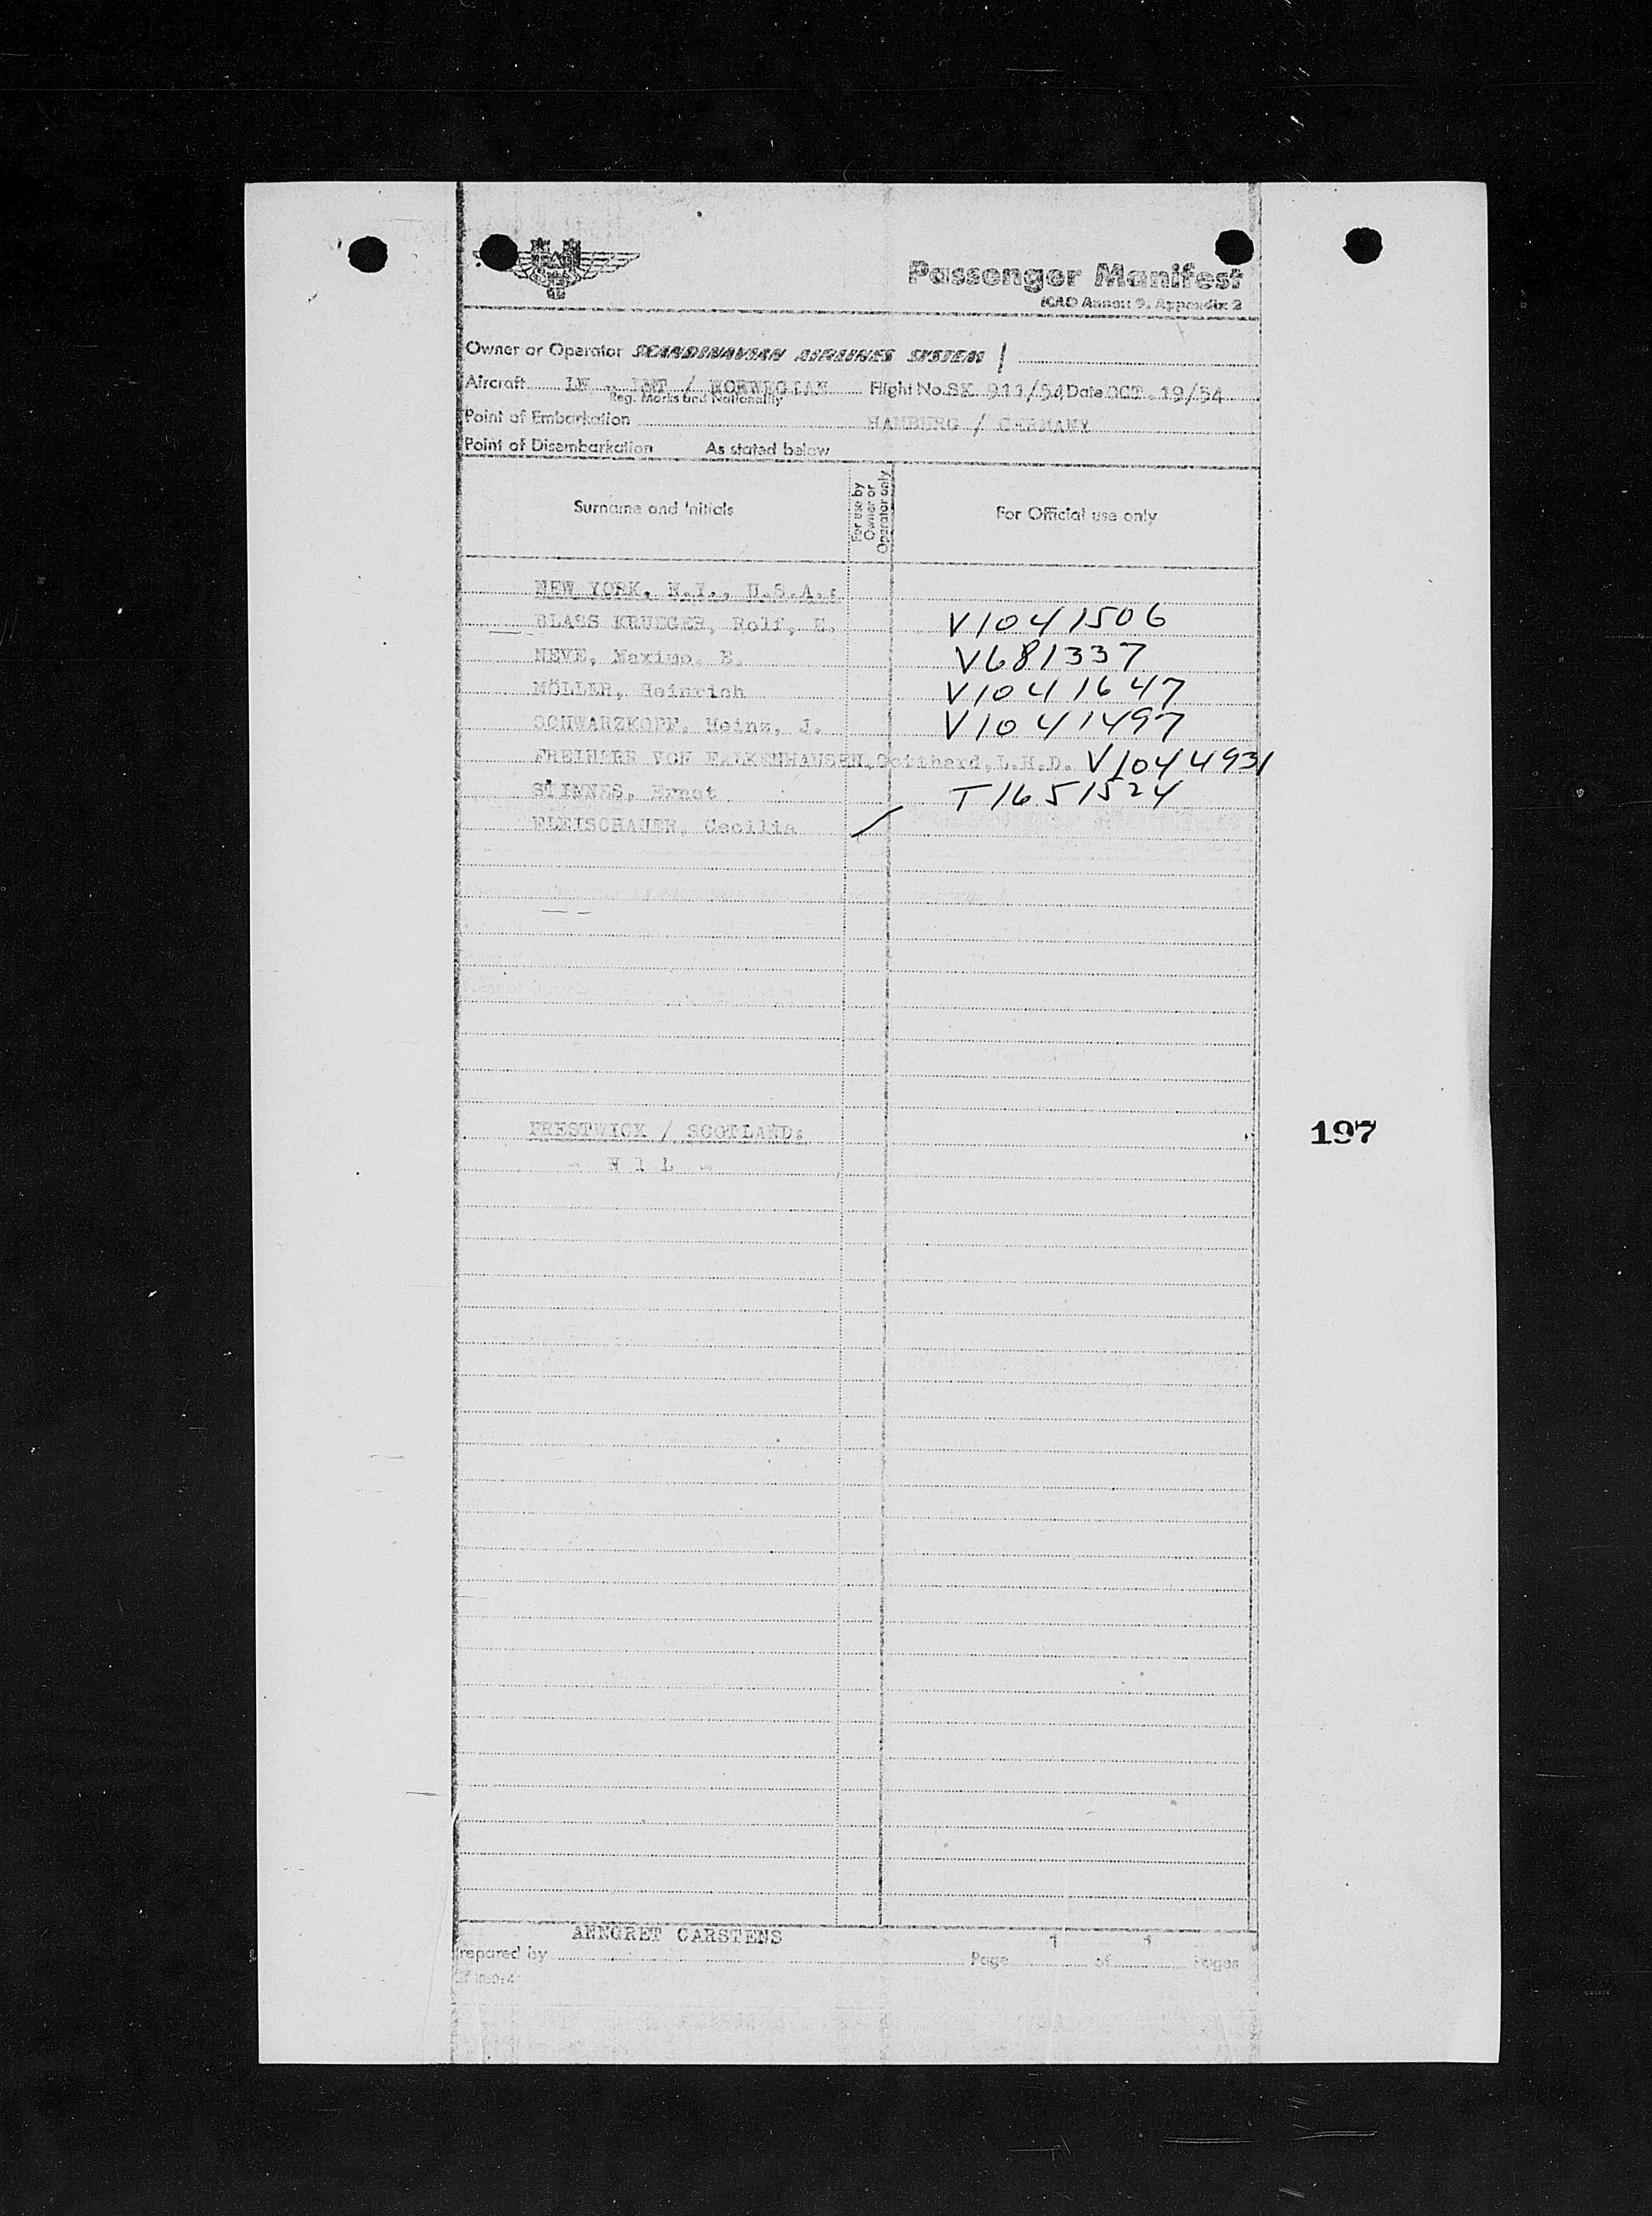 Passenger Manifest
ICAO Annex 9, Appendix 2
Owner or Operator SCANDINAVIAN AIRLINES SYSTEM
Aircraft LN - / NORWEGIAN Flight No. SK 911/54 Date OCT. 19/54
Reg. Marks and Nationality
Point of Embarkation HAMBURG / GERMANY
Point of Disembarkation As stated below
Surname and Initials
For use by Owner or Operator only
For Official use only
NEW YORK, N.Y., U.S.A.:
BLASS KRUEGER, Rolf, E. V1041506
NEVE, Maximo, E. V681337
MÖLLER, Heinrich V1041647
SCHWARZKOPF, Heinz, J. V1041497
FREIHERR VON FALKENHAUSEN, Gotthard, L.H.D. V1044931
STINNES, Ernst T1651524
FLEISCHAUER, Cecilia
PRESTWICK / SCOTLAND:
- N I L -
197
ANNGRET CARSTENS
Prepared by Page 1 of 1 Pages